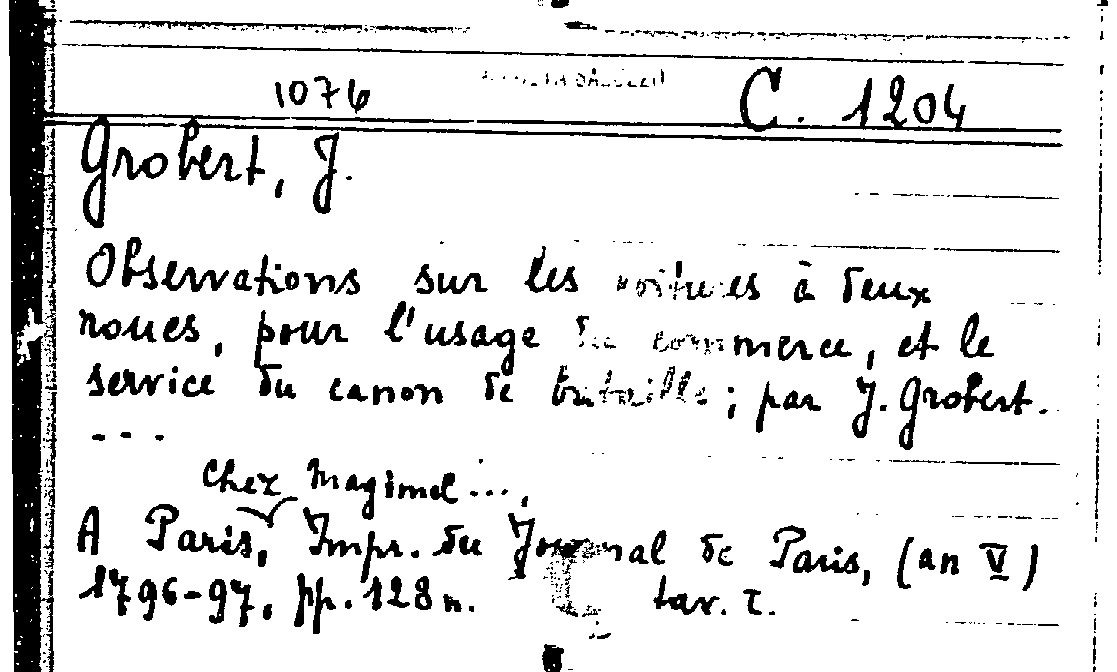 1076 C. 1204
Grobert, J.
Observations sur les voitures à deux
roues, pour l'usage du commerce, et le
service du canon de bataille; par J. Grobert.
---
chez Magimel...,
A Paris, Impr. du Journal de Paris, (an V)
1796-97, pp. 128 n. tav. 7.